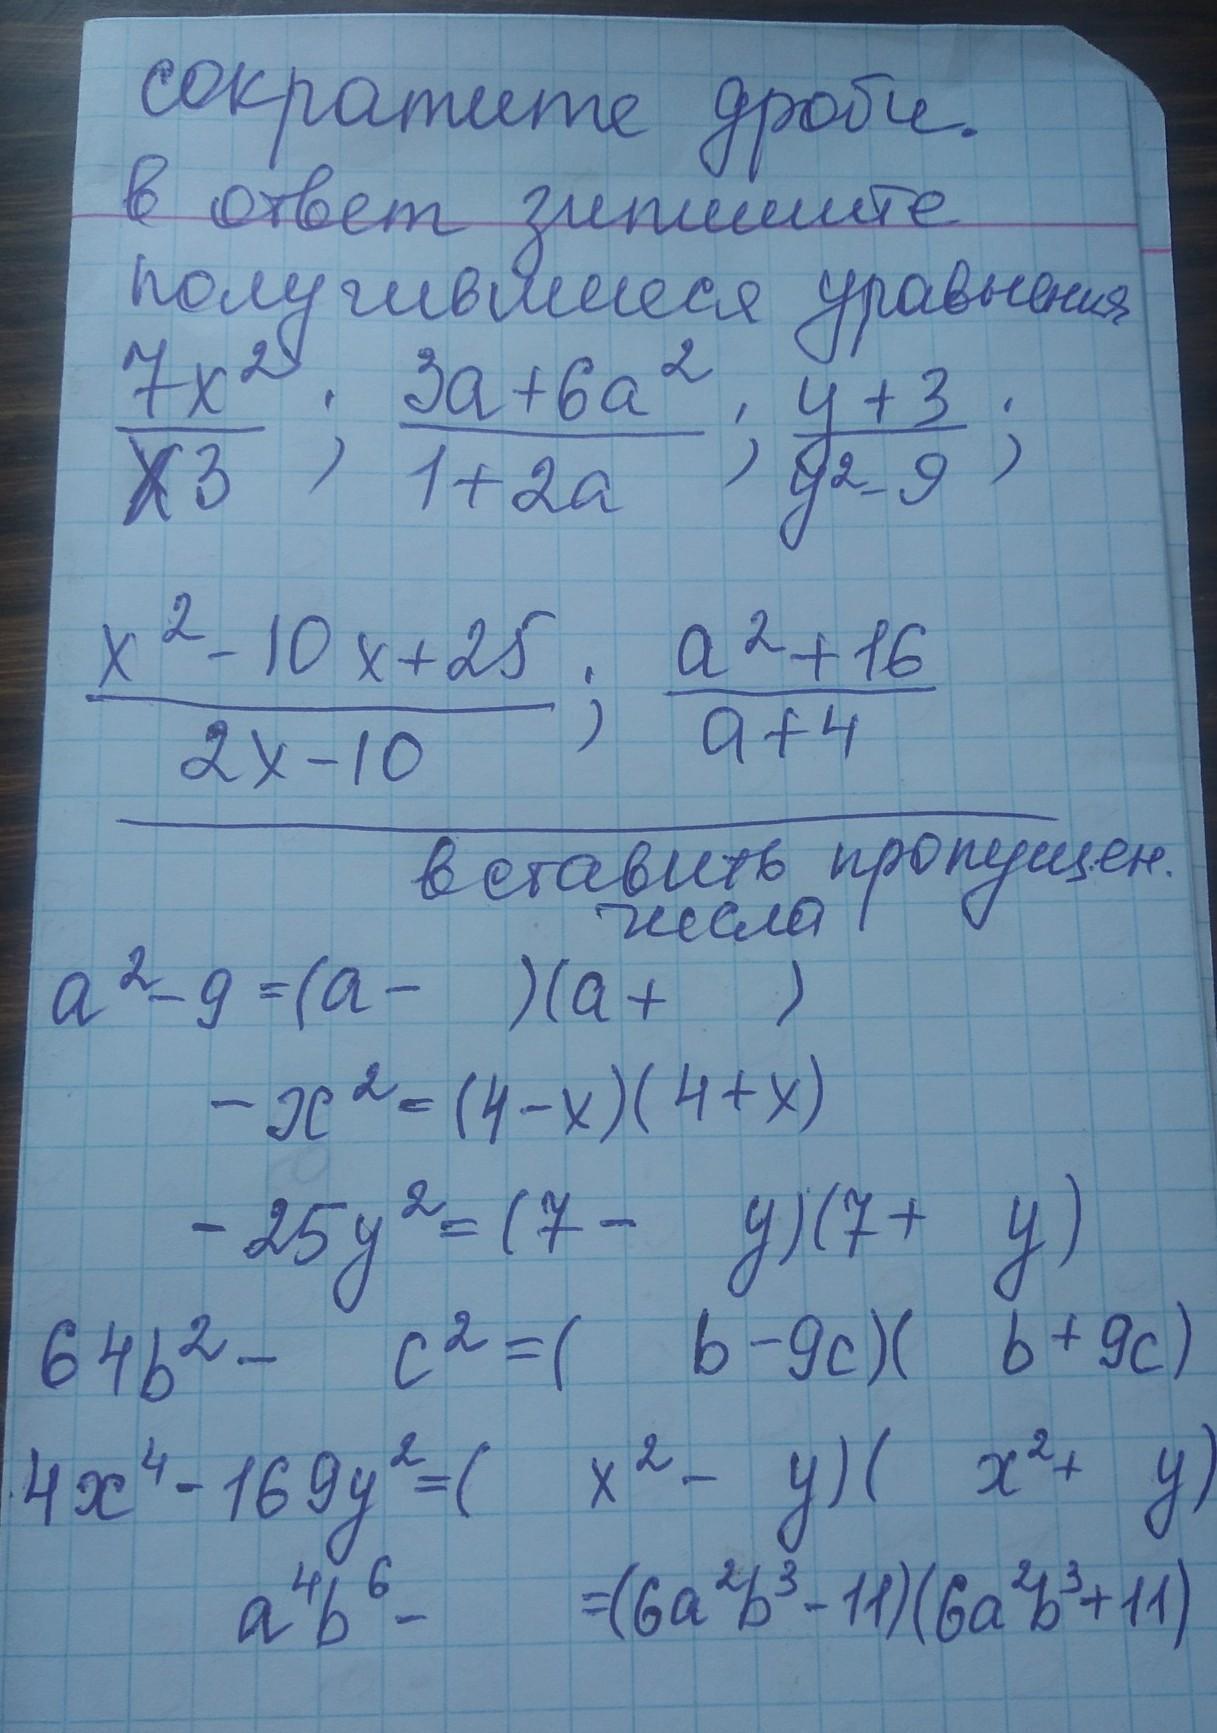 сократите дроби.
в ответ зипишите
получившиеся уравнения
7x²/x3 ; 3a+6a²/1+2a ; y+3/y²-9 ;
x²-10x+25/2x-10 ; a²+16/a+4
вставить пропущен.
числа
a²-9=(a- )(a+ )
-x²=(4-x)(4+x)
-25y²=(7- y)(7+ y)
64b²- c²=( b-9c)( b+9c)
4x⁴-169y²=( x²- y)( x²+ y)
a⁴b⁶- =(6a²b³-11)(6a²b³+11)